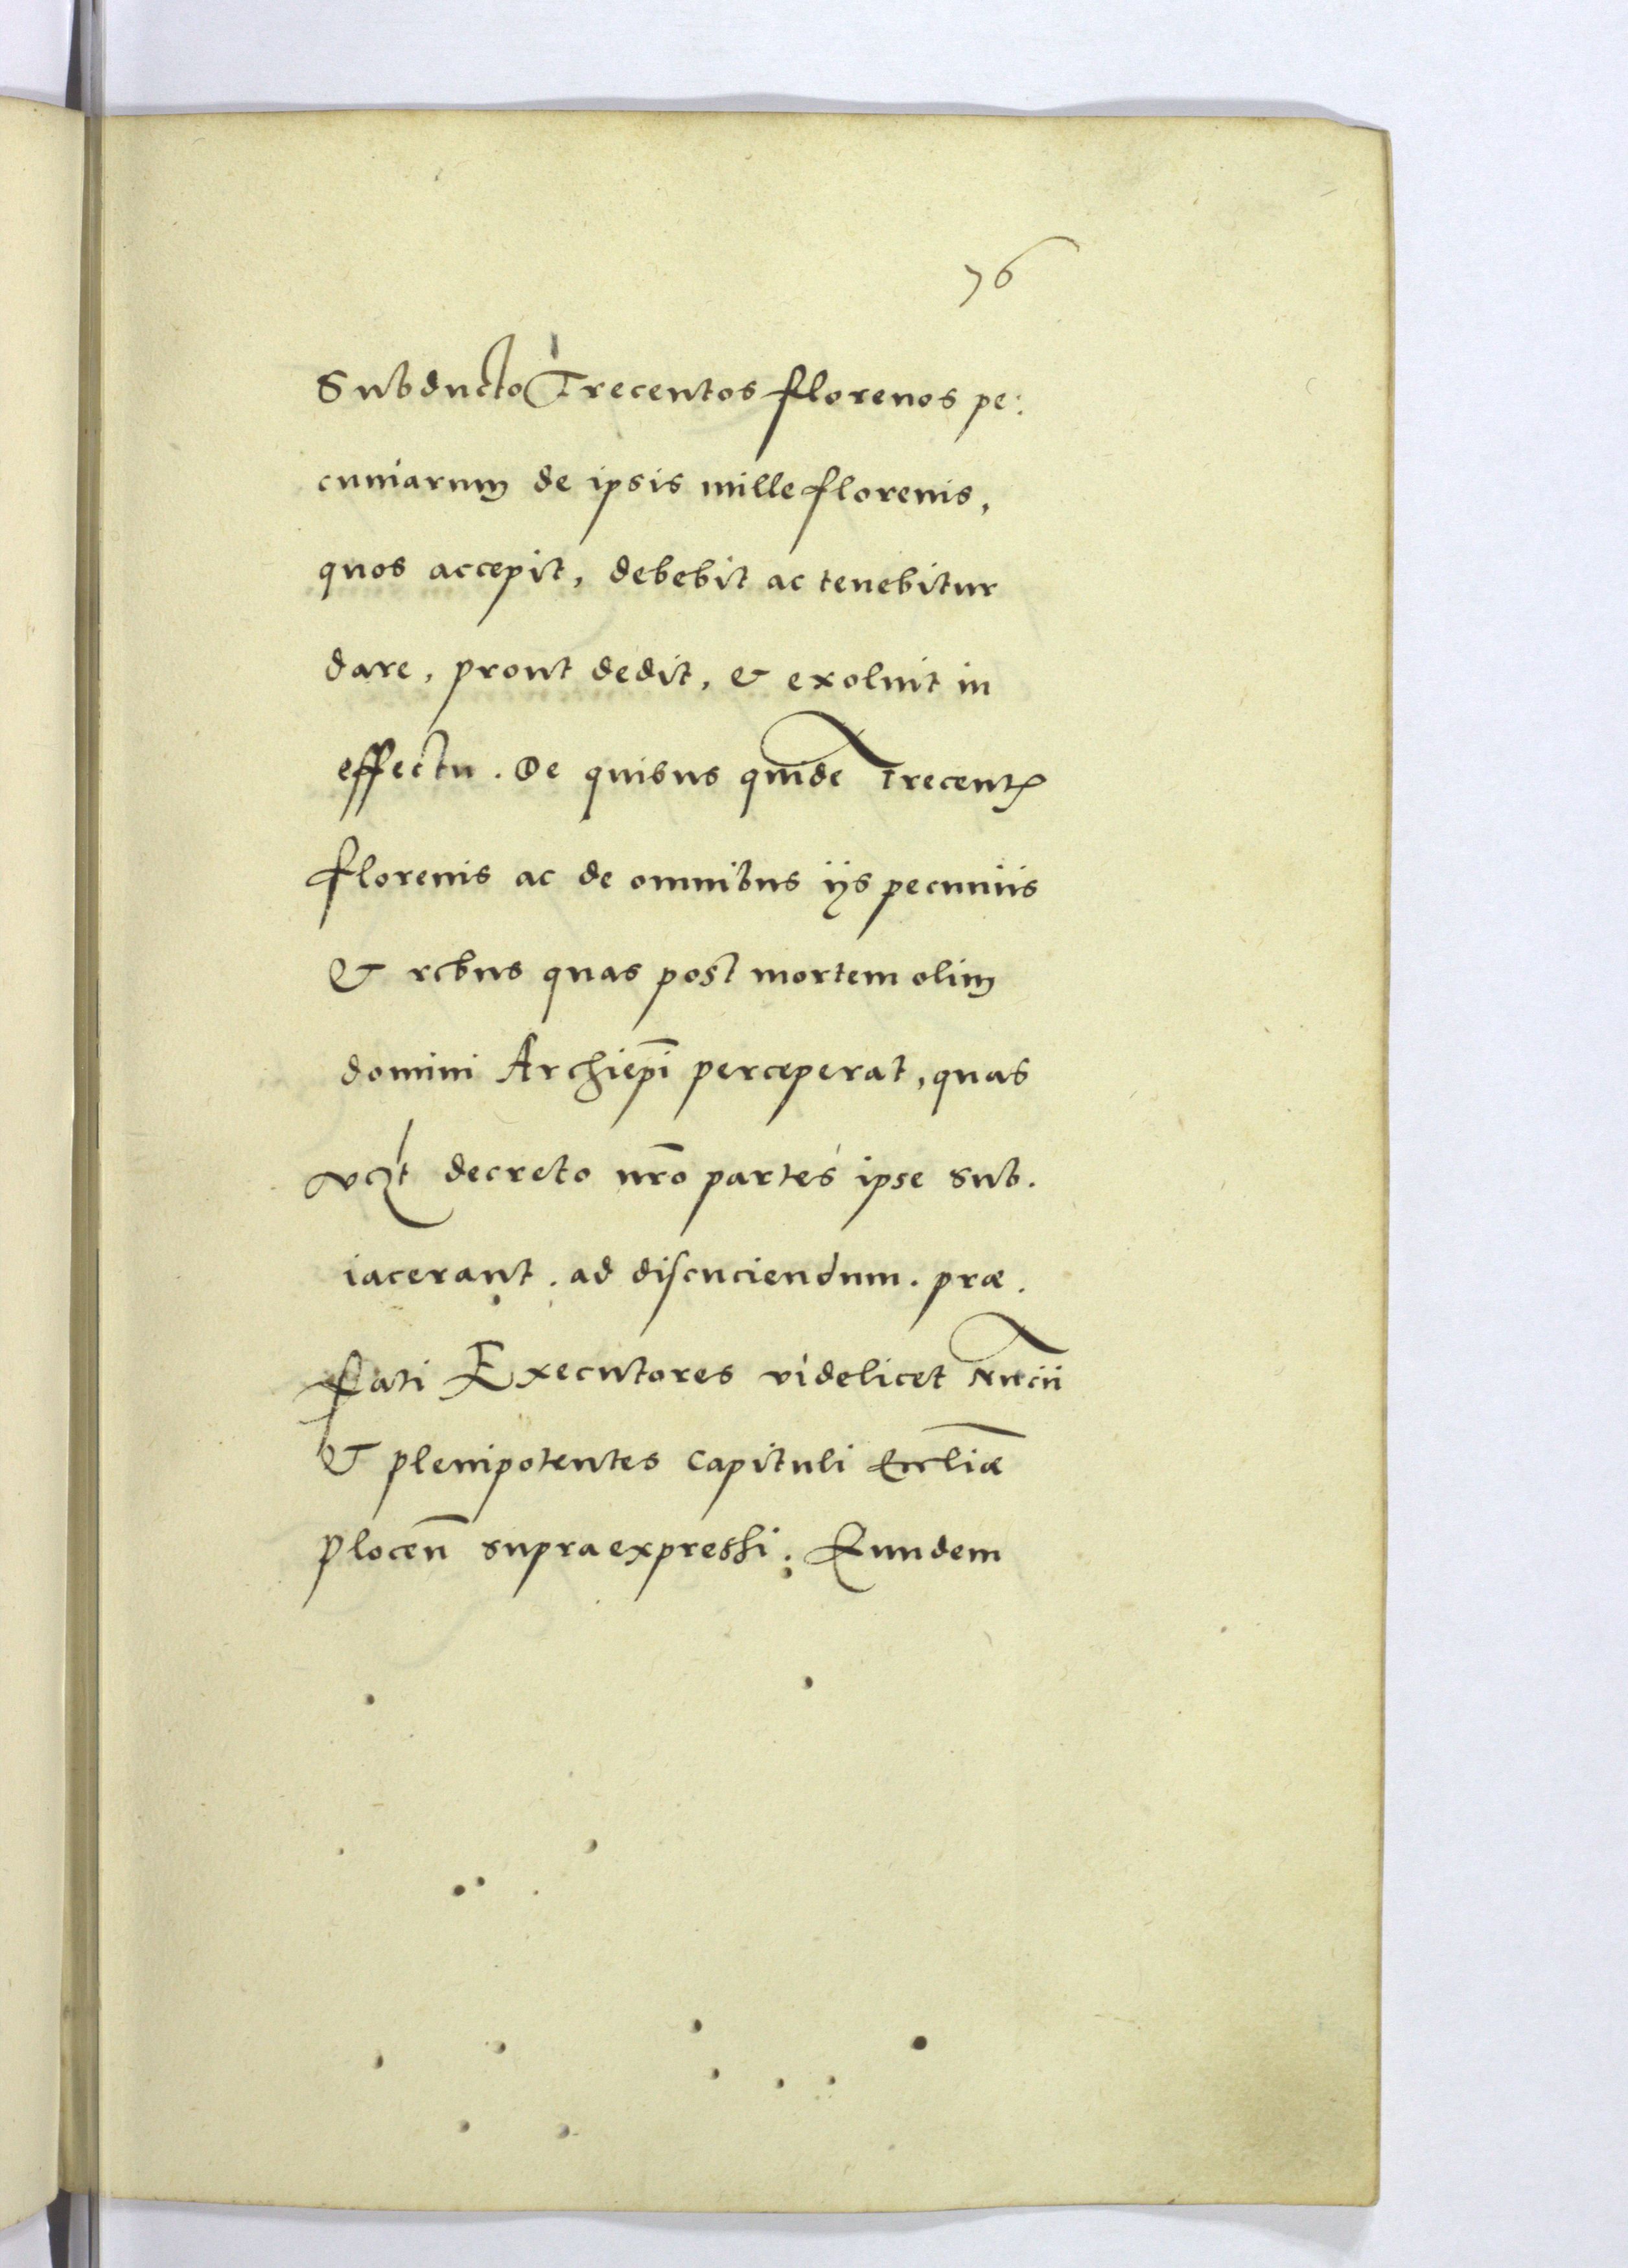 76
Subducto Trecentos florenos pe:
cuniarum de ipsis mille florenis,
quos accepit, debebit ac tenebitur
dare, prout dedit, & exoluit in
effectu. De quibus quide Trecentꝭ
florenis ac de omnibus ijs pecuniis
& rebus quas post mortem olim
domini Archiepĩ perceperat, quas
decreto nr̃o partes ipse sub.
iacerant. ad discuciendum. præ.
fati Executores videlicet Nũcii
& plenipotentes Capituli Eccl̃iæ
Plocen̄ supraexpressi. Eundem